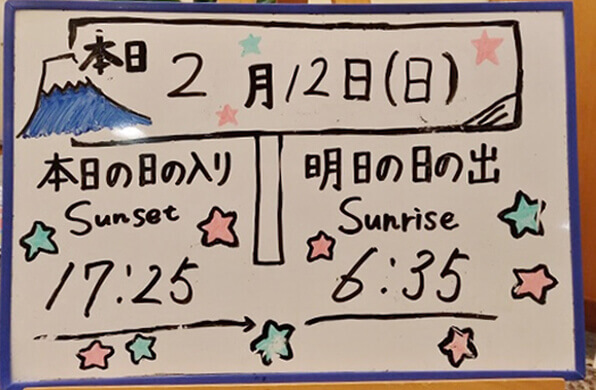 本日 2月12日(日)
本日の日の入り
Sunset
17:25
明日の日の出
Sunrise
6:35